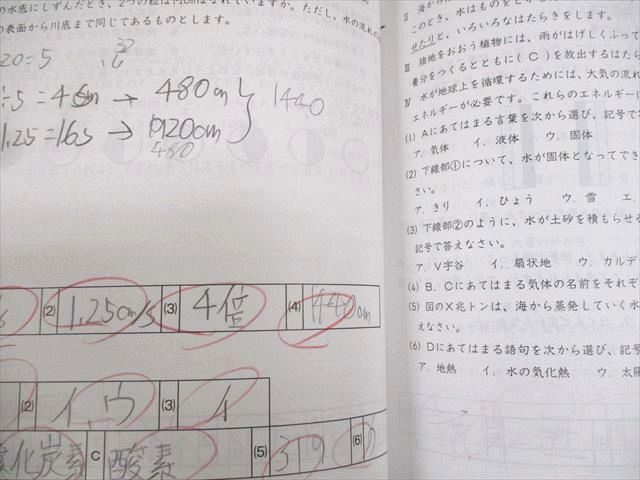 の水底にしずんだとき、2つの粒は何cmはなれていますか。ただし、水の流れの
の表面から川底まで同じであるものとします。
20=5
÷5=4cm → 480cm
1.25=16s → 1920cm
480
1440
(2) 1.25cm/s (3) 4倍 (4) 1440cm
(2) イ,ウ (3) イ
酸化炭素 C 酸素 (5) 319 (6)
Ⅱ 海から
このとき、水はものをとか
せたりと、いろいろなはたらきをします。
Ⅲ 陸地をおおう植物には、雨がはげしくふって
養分をつくるとともに( C )を放出するはたら
Ⅳ 水が地球上を循環するためには、大気の流れ
エネルギーが必要です。これらのエネルギーに
(1) Aにあてはまる言葉を次から選び、記号で答
ア. 気体 イ. 液体 ウ. 固体
(2) 下線部①について、水が固体となってでき
さい。
ア. きり イ. ひょう ウ. 雪 エ.
(3) 下線部②のように、水が土砂を積もらせる
記号で答えなさい。
ア. V字谷 イ. 扇状地 ウ. カルデ
(4) B、Cにあてはまる気体の名前をそれぞ
(5) 図のX兆トンは、海から蒸発していく水
えなさい。
(6) Dにあてはまる語句を次から選び、記号
ア. 地熱 イ. 水の気化熱 ウ. 太陽